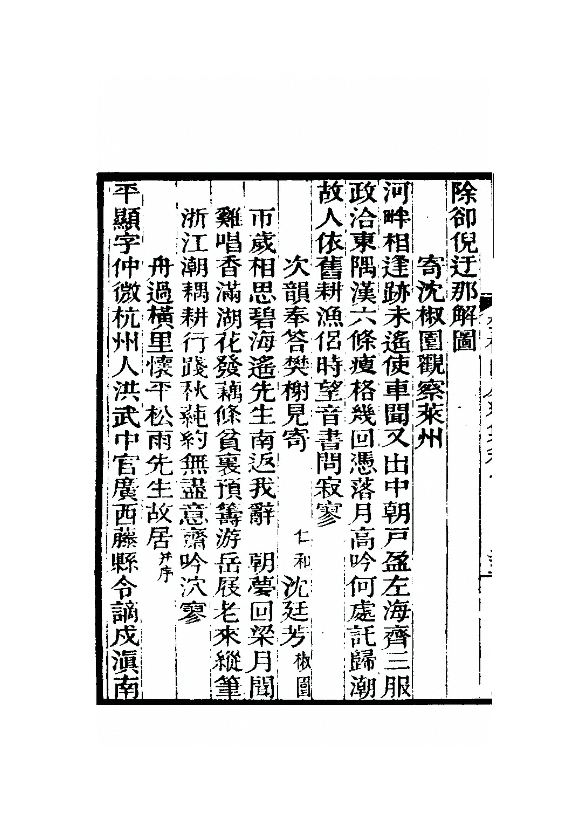 除卻倪迂那解圖
寄沈椒園觀察萊州
河畔相逢跡未遙使車聞又出中朝戸盈左海齊三服
政洽東隅漢六條瘦格幾回憑落月高吟何處託歸潮
故人依舊耕漁侶時望音書問寂寥
次韻奉答樊榭見寄 仁和沈廷芳椒園
帀歲相思碧海遙先生南返我辭朝夢回梁月聞
雞唱香滿湖花發藕條負裏預籌游岳屐老來縱筆
浙江潮耦耕行踐秋蒓約無盡意齋吟泬寥
舟過橫里懷平松雨先生故居并序
平顯字仲微杭州人洪武中官廣西藤縣令謫戍滇南